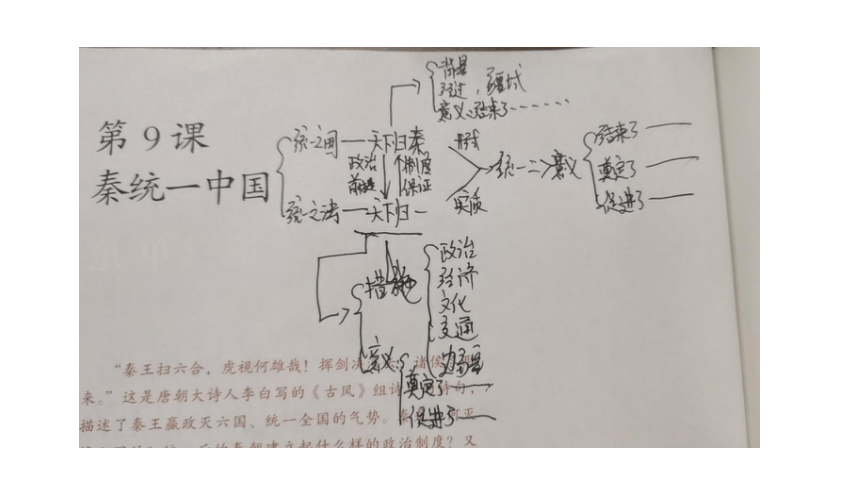 背景
经过，疆域
意义：结束了……
第 9 课
秦统一中国
统之因——天下归秦
政治
前提
制度
保证
统之法——天下归一
形式
实质
统一——>意义
结束了——
奠定了——
促进了——
措施
政治
经济
文化
交通
意义
奠定了——
促进了——
“秦王扫六合，虎视何雄哉！挥剑决 诸侯
来。”这是唐朝大诗人李白写的《古风》组诗
描述了秦王嬴政灭六国、统一全国的气势。秦
起什么样的政治制度？又